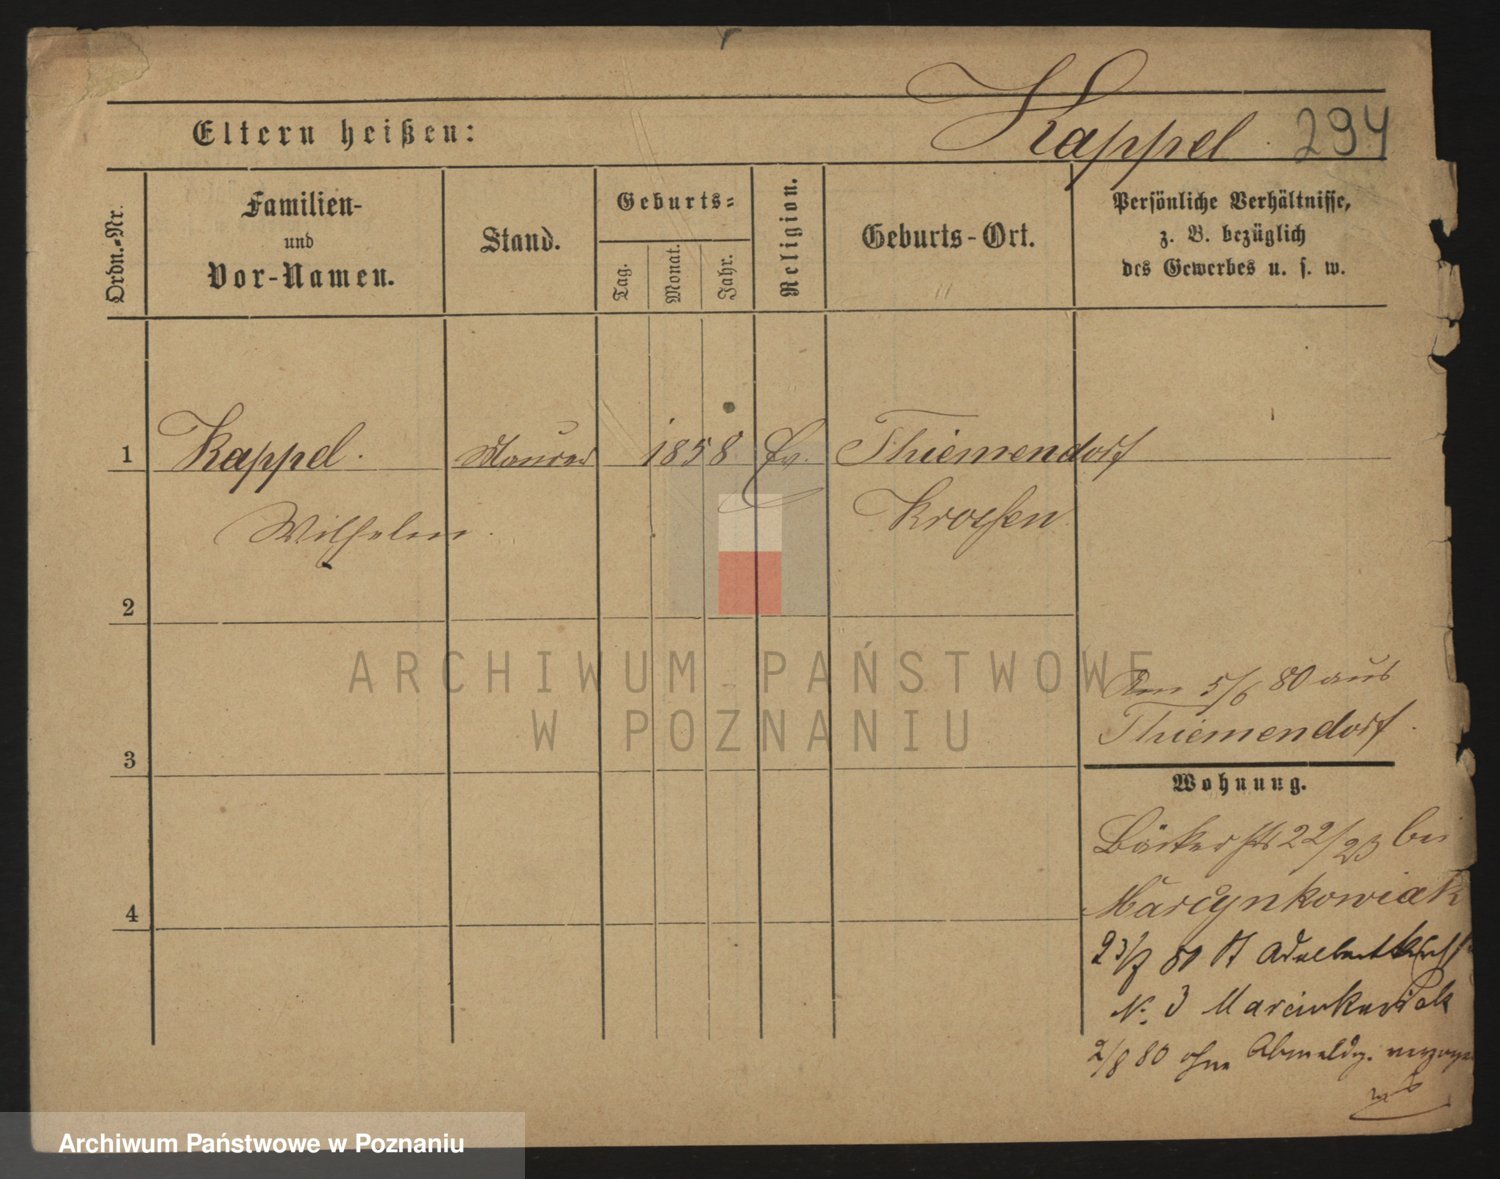 Kappel. 294
Eltern heißen:
Ordn.-Nr.
Familien-
und
Vor-Namen.
Stand.
Geburts-
Tag.
Monat.
Jahr.
Religion.
Geburts-Ort.
Persönliche Verhältnisse,
z. B. bezüglich
des Gewerbes u. s. w.
1 Kappel. Maurer 1858 Ev. Thiemendorf
Wilhelm. Krossen
2
3
4
ARCHIWUM PAŃSTWOWE
W POZNANIU
Am 5/6 80 aus
Thiemendorf.
Wohnung.
Bäckerstr 22/23 bei
Marcynkowiak
23/7 80
N. 3 Marcinkowiak
2/8 80 ohne Abmeldg. verzogen
Archiwum Państwowe w Poznaniu